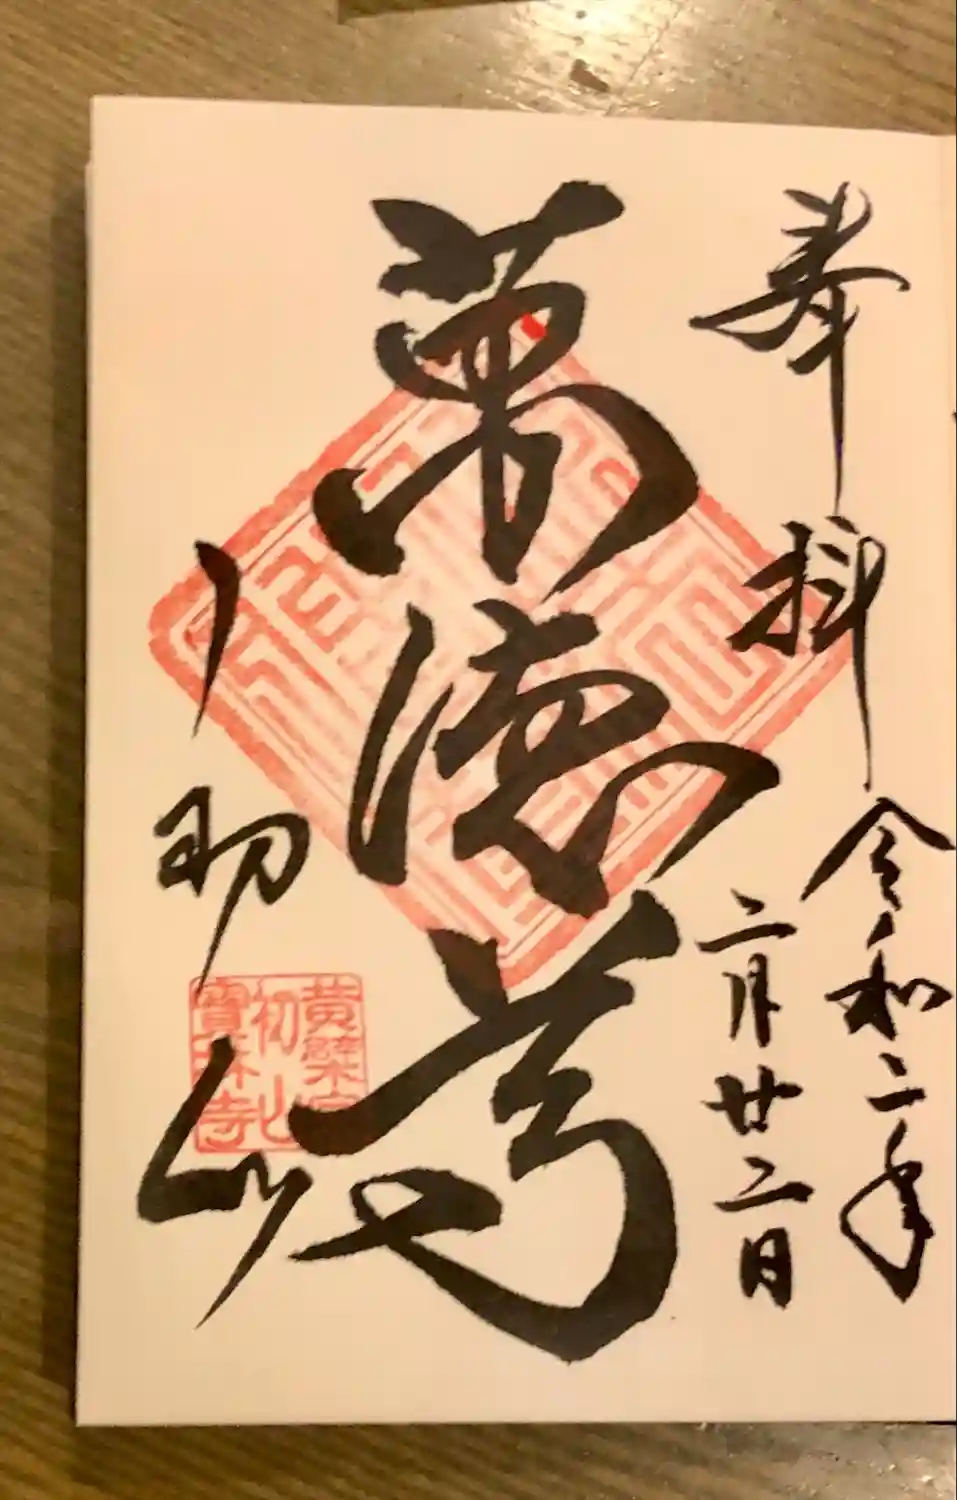 奉拝
令和二年
二月廿二日
萬徳尊
初山
黄檗宗
初山
寳林寺